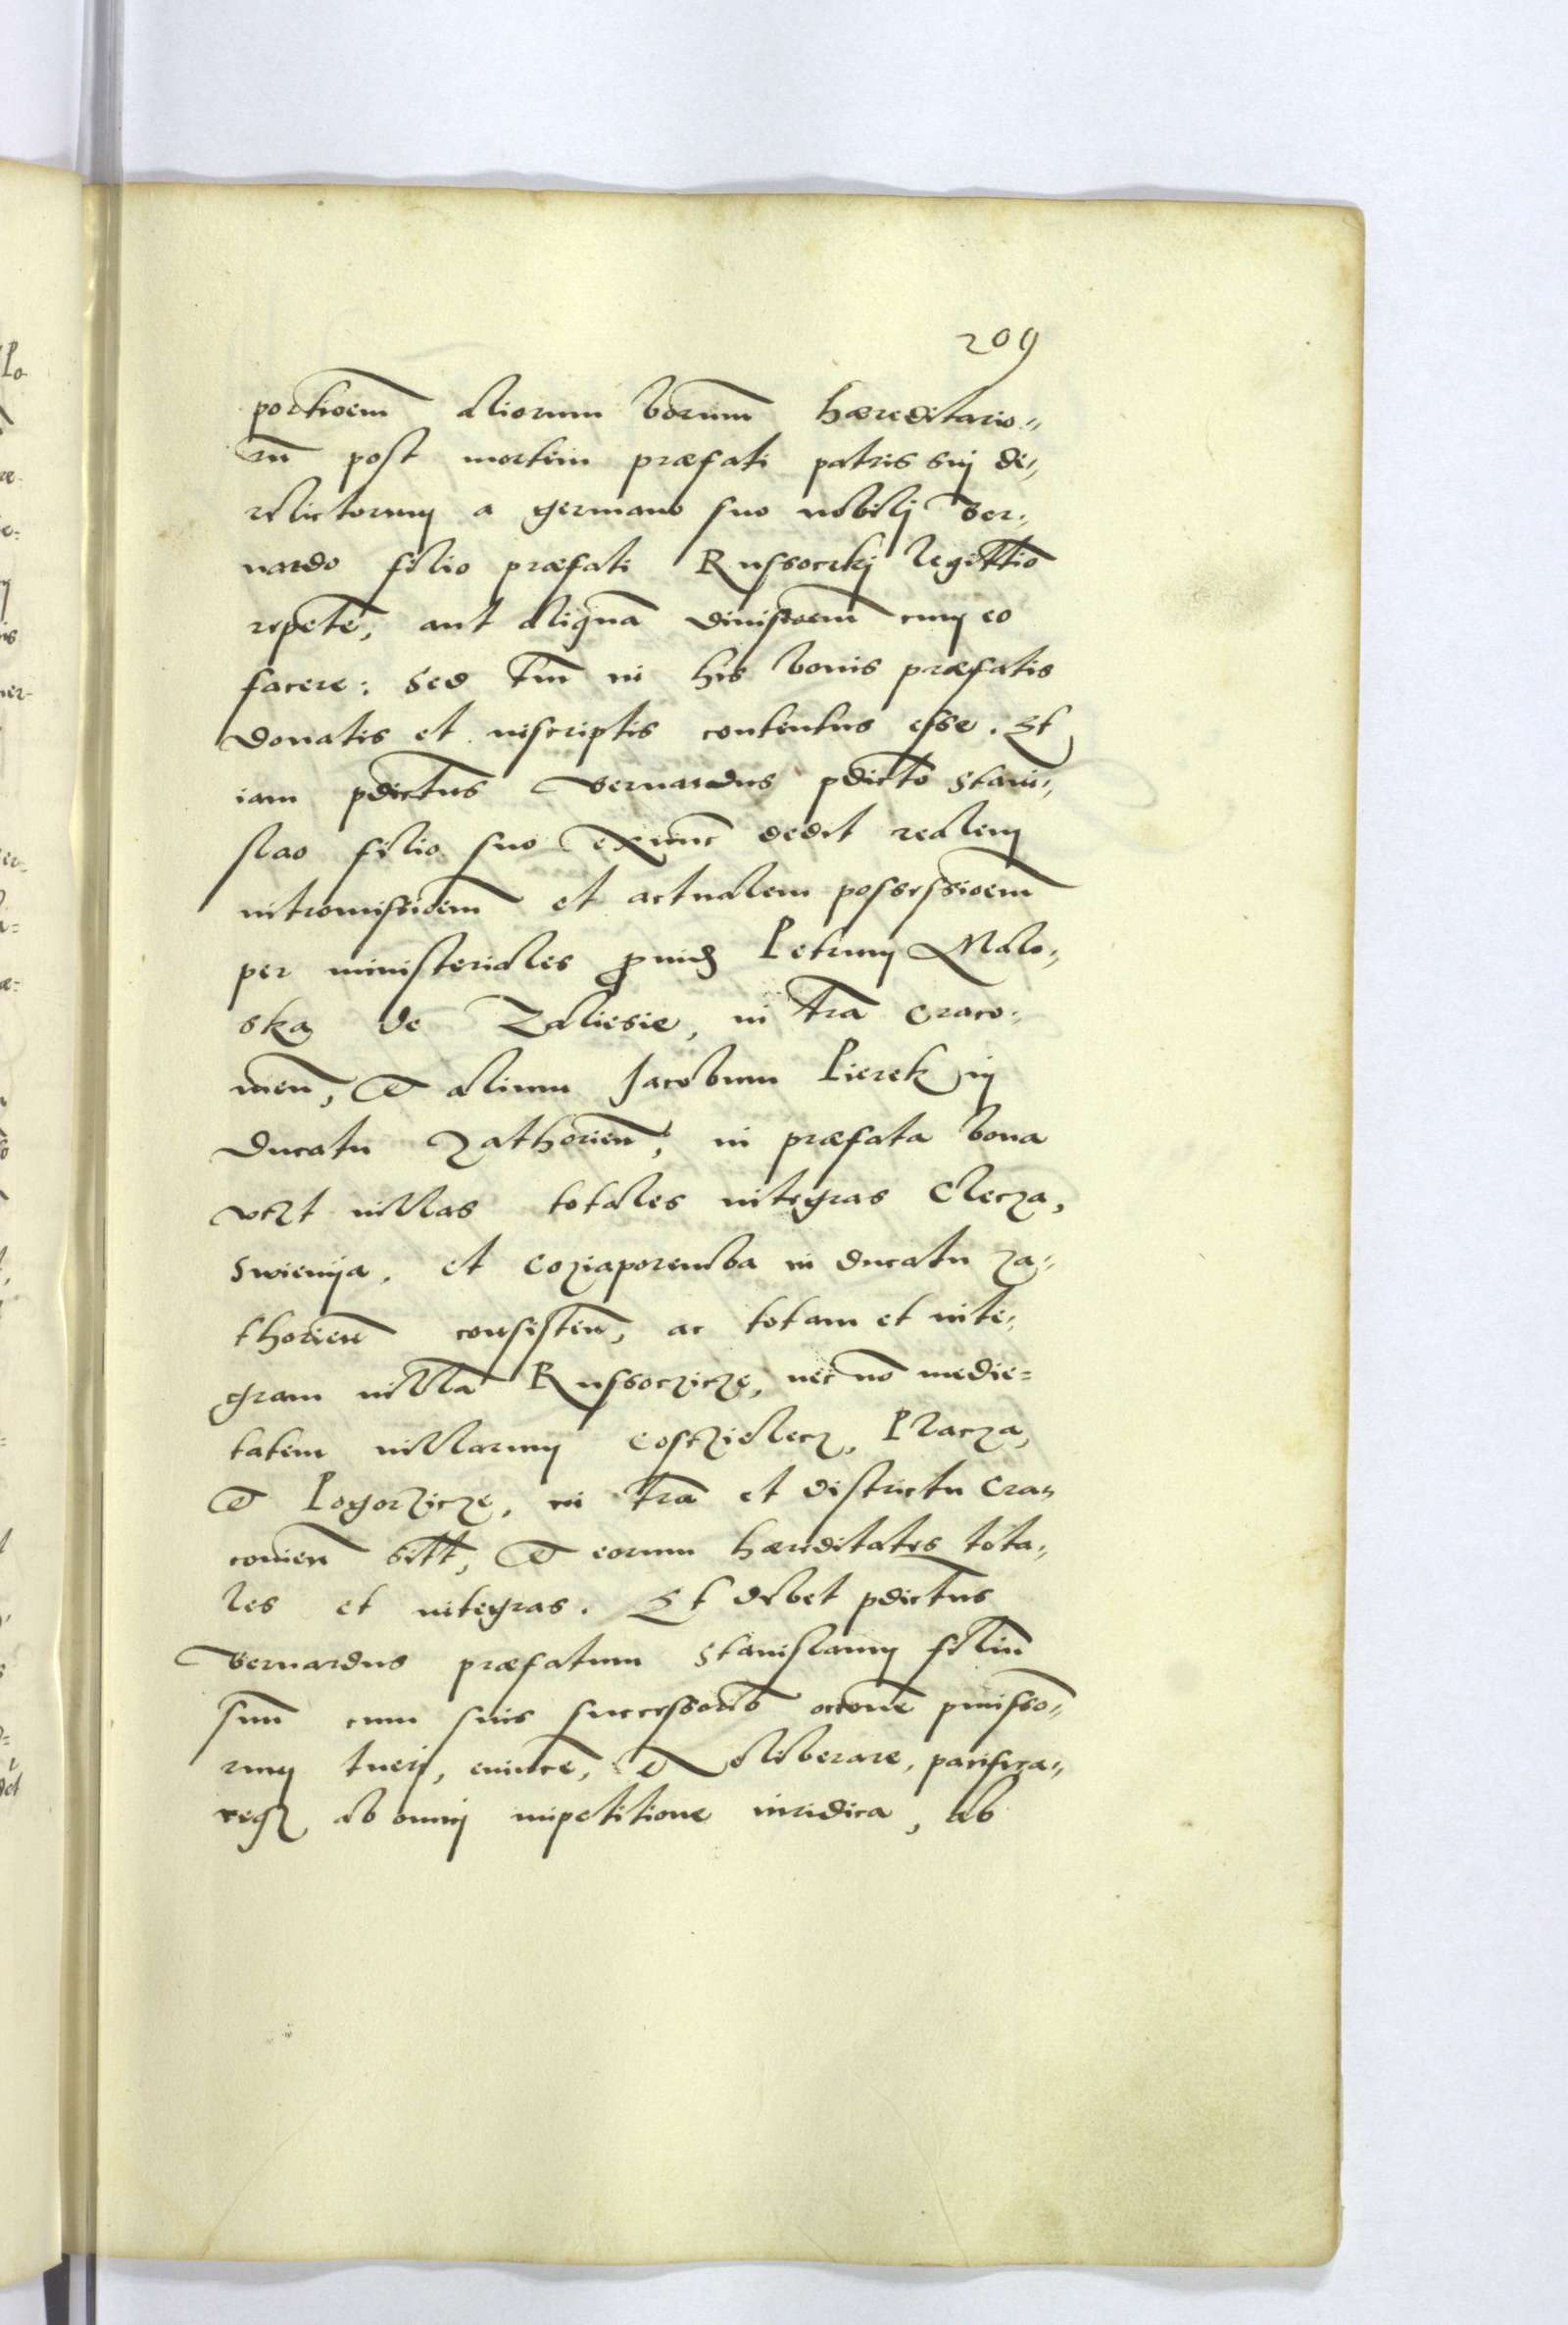 209
portioem aliorum borum hæreditario„
rū post mortem præfati patris sui de„
relictorum a germano suo nobili Ber„
nardo filio præfati Russoczki legittio
repete, aut aliquā divisioem cum eo
facere: Sed tm̄ in his bonis præfatis
donatis et inscriptis contentus esse. Et
iam pdictus Bernardus pdicto Stani„
slao filio suo Exnunc dedit realem
intromissioem et actualem possessioem
per ministeriales Petrum Malo„
ska de Zaliesie, in tra Craco„
vien, Et alium Jacobum Pierek in
Ducatu Zathorien, in præfata bona
vczt villas totales integras Clecza,
Swienija, et Coziaporemba in ducatu za„
thorien consisten, ac totam et inte„
gram villā Russoczicze, nec nō medie=
tatem villarum Cosczielecz, Placza,
Et Pogorzicze, in tra et districtu Cra„
covien sitt, Et eorum hæreditates tota„
les et integras. Et debet pdictus
Bernardus præfatum Stanislaum filiū
suū cum suis successorib ōrone pmisso„
rum tueri, evince, Et eliberare, pacifica„
reqz ab omni impetitione iuridica, ab